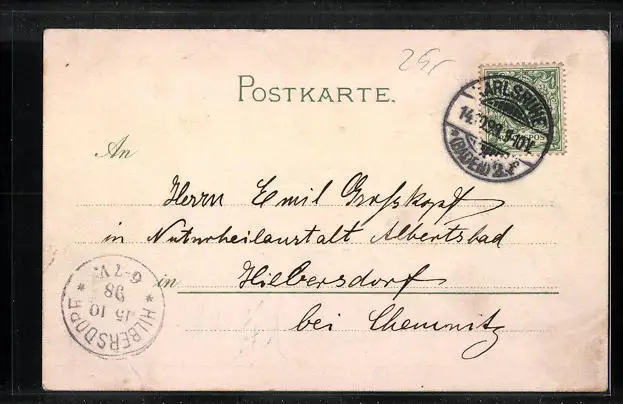 25,-
POSTKARTE.
KARLSRUHE
14.10.98. 9-10V.
* (BADEN) 2. *
An
Herrn Emil Großkopf
in Naturheilanstalt Albertsbad
in Hilbersdorf
bei Chemnitz
* HILBERSDORF *
15 10
98
6-7V.